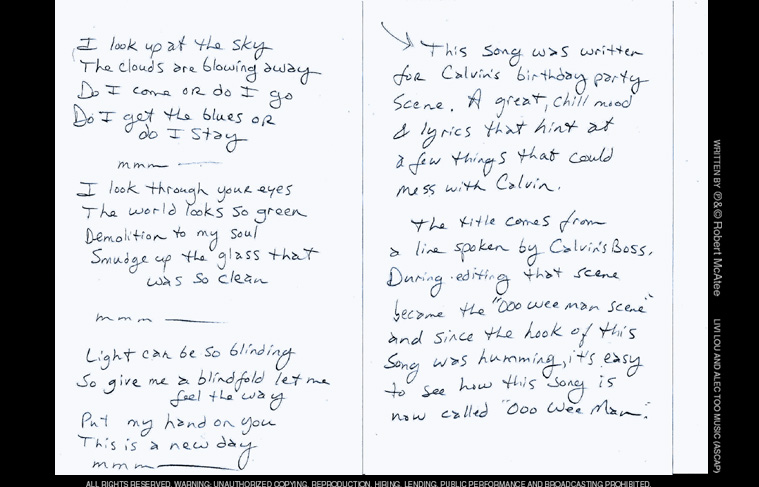 I look up at the sky
The clouds are blowing away
Do I come OR do I go
Do I get the blues OR
do I stay
mmm
I look through your eyes
The world looks so green
Demolition to my soul
Smudge up the glass that
was so clean
mmm
Light can be so blinding
So give me a blindfold let me
feel the way
Put my hand on you
This is a new day
mmm
This song was written
for Calvin's birthday party
scene. A great, chill mood
& lyrics that hint at
a few things that could
mess with Calvin.
The title comes from
a line spoken by Calvin's Boss.
During editing that scene
became the "Ooo wee man scene"
and since the hook of this
song was humming, it's easy
to see how this song is
now called "Ooo Wee Man".
WRITTEN BY ℗&© Robert McAtee
LIVI LOU AND ALEC TOO MUSIC (ASCAP)
ALL RIGHTS RESERVED. WARNING: UNAUTHORIZED COPYING, REPRODUCTION, HIRING, LENDING, PUBLIC PERFORMANCE AND BROADCASTING PROHIBITED.